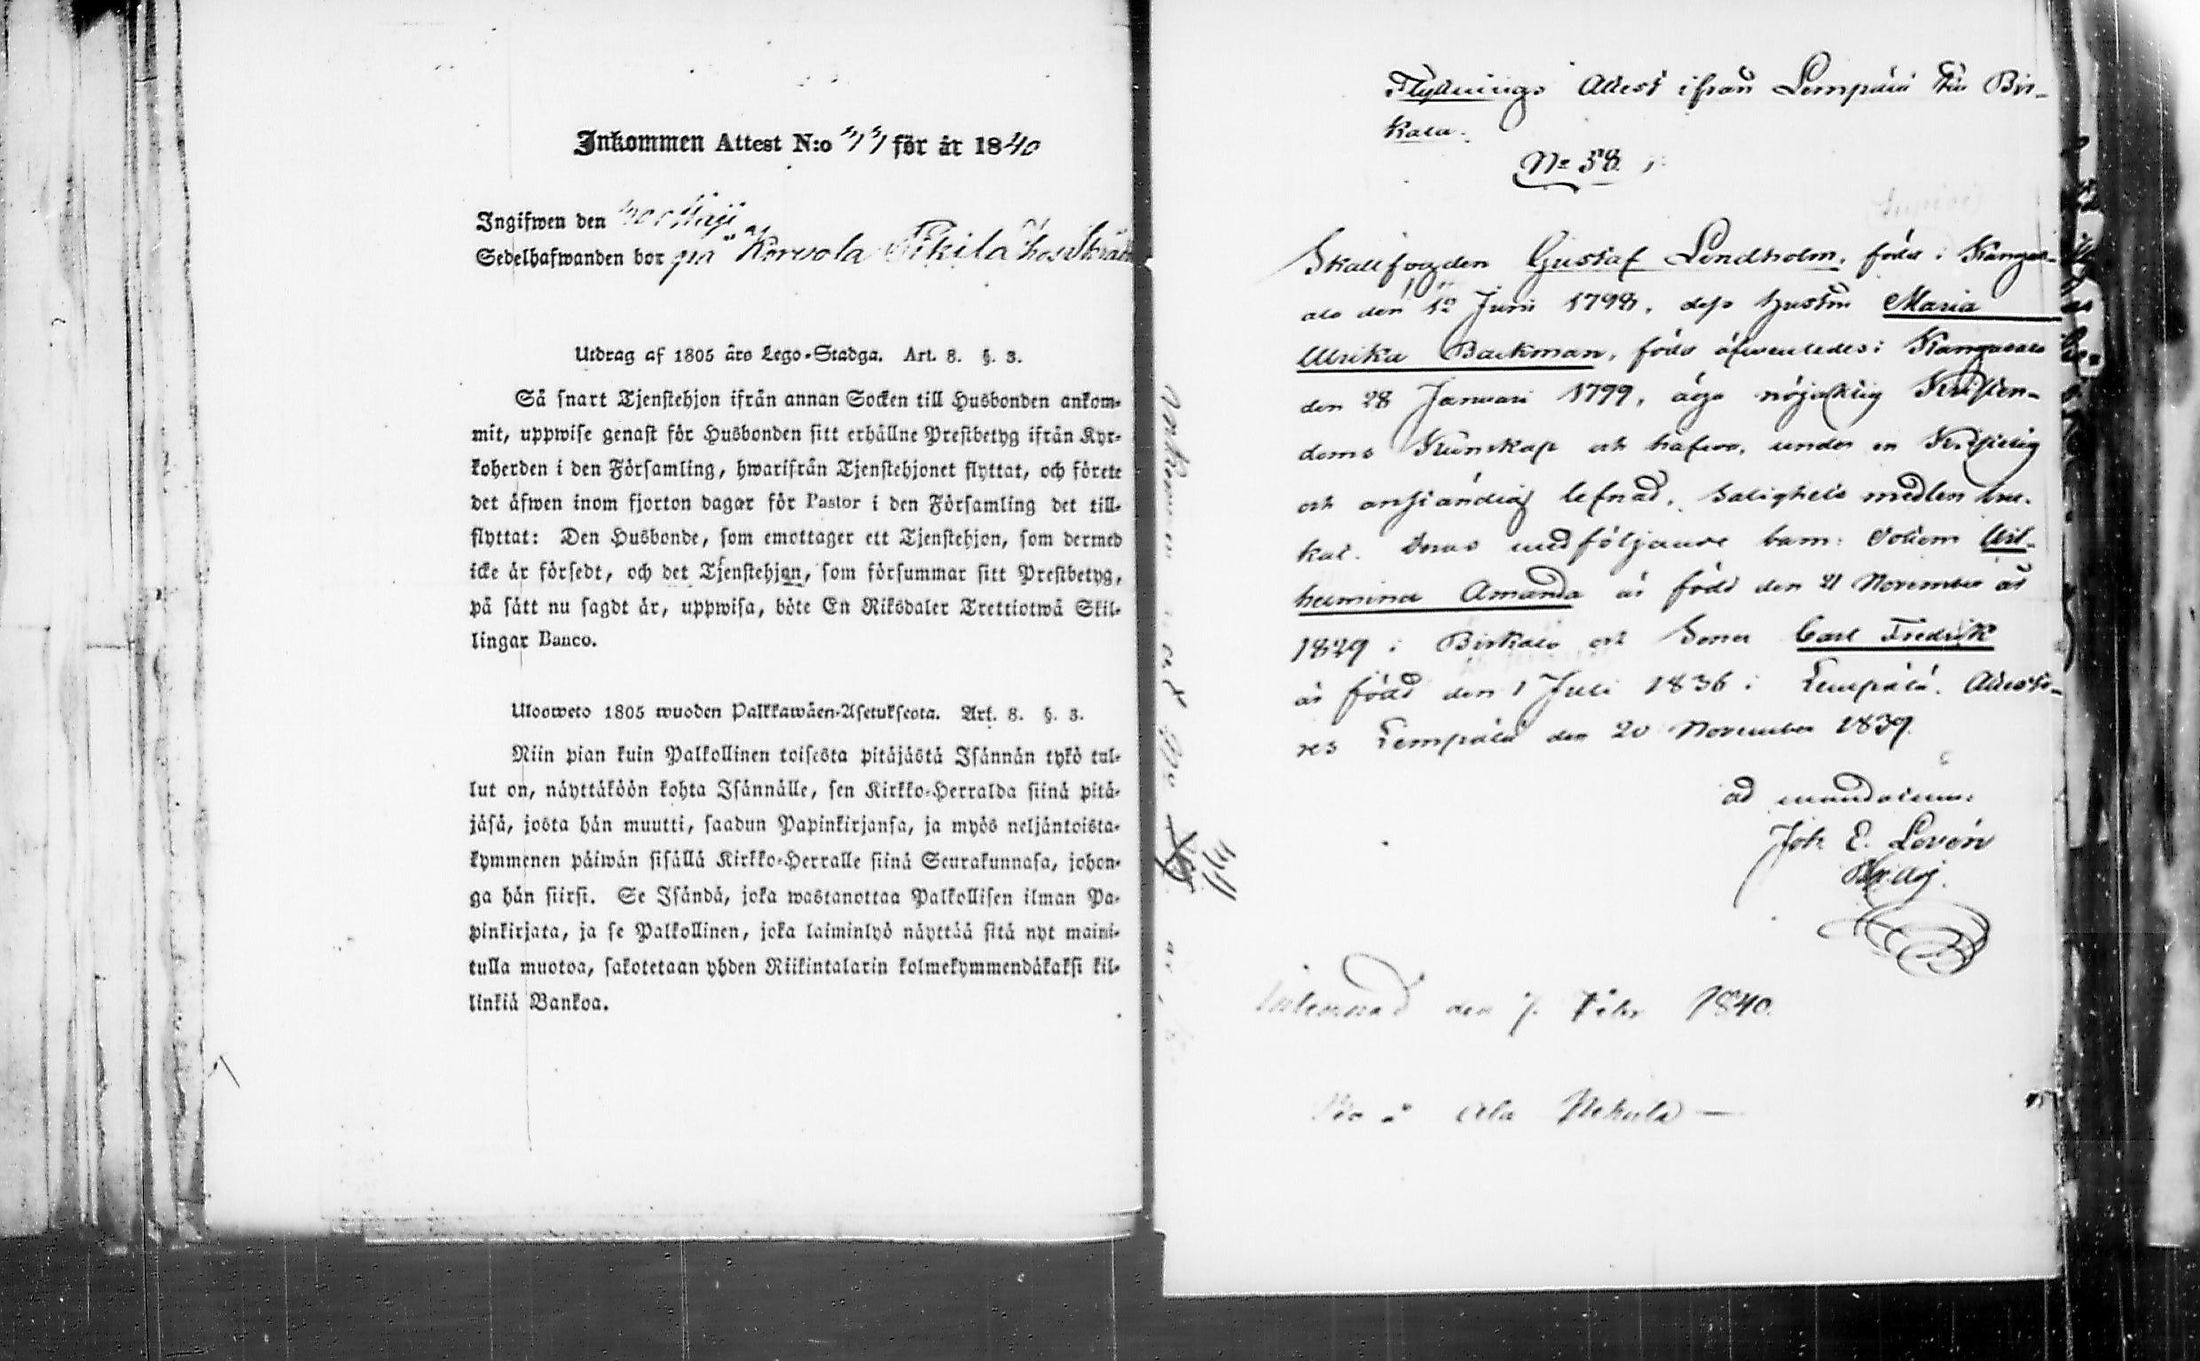 Inkommen Attest N:o för år 1840
Ingifwen den Maji
Sedelhafwanden bor på Korvola Pikilä hos
Utdrag af 1805 års Lego-Stadga. Art. 8. §. 3.
Så snart Tjenstehjon ifrån annan Socken till Husbonden ankom-
mit, uppwise genast för Husbonden sitt erhållne Prestbetyg ifrån Kyr-
koherden i den Församling, hwarifrån Tjenstehjonet flyttat, och förete
det äfwen inom fjorton dagar för Pastor i den Församling det till-
flyttat: Den Husbonde, som emottager ett Tjenstehjon, som dermed
icke är försedt, och det Tjenstehjon, som försummar sitt Prestbetyg,
på sätt nu sagdt är, uppwisa, böte En Riksdaler Trettiotwå Skil-
lingar Banco.
Ulosweto 1805 wuoden Palkkawäen-Asetuksesta. Art. 8. §. 3.
Niin pian kuin Palkollinen toisesta pitäjästä Isännän tykö tul-
lut on, näyttäköön kohta Isännälle, sen Kirkko-Herralda siinä pitä-
jäsä, josta hän muutti, saadun Papinkirjansa, ja myös neljäntoista-
kymmenen päiwän sisällä Kirkko-Herralle siinä Seurakunnasa, johon-
ga hän siirsi. Se Isändä, joka wastanottaa Palkollisen ilman Pa-
pinkirjata, ja se Palkollinen, joka laiminlyö näyttää sitä nyt maini-
tulla muotoa, sakotetaan yhden Riikintalarin kolmekymmendäkaksi kil-
linkiä Bankoa.
Flyttnings Attest ifrån Lempälä till Bir-
kala.
No 58
Skallfogden Gustaf Lindholm, född i Kangas-
ala den 12 Junii 1798, dess hustru Maria
Ulrika Backman, född äfwenledes i Kangasala
den 28 Januari 1799, äga nöjaktig Kristen-
doms Kunskap och hafwa, under en Kristelig
och anständig lefnad, salighets medlen bru-
kat. Deras medföljande barn: Dottern Wil-
helmina Amanda är född den 21 November år
1829 i Birkala och Sonen Carl Fredrik
är född den 1 Juli 1836 i Lempälä. Atteste-
res Lempälä den 20 November 1839.
ad mandatum:
Joh E. Lovén
Inlemnad den 7. Febr 1840.
Bo å Ala